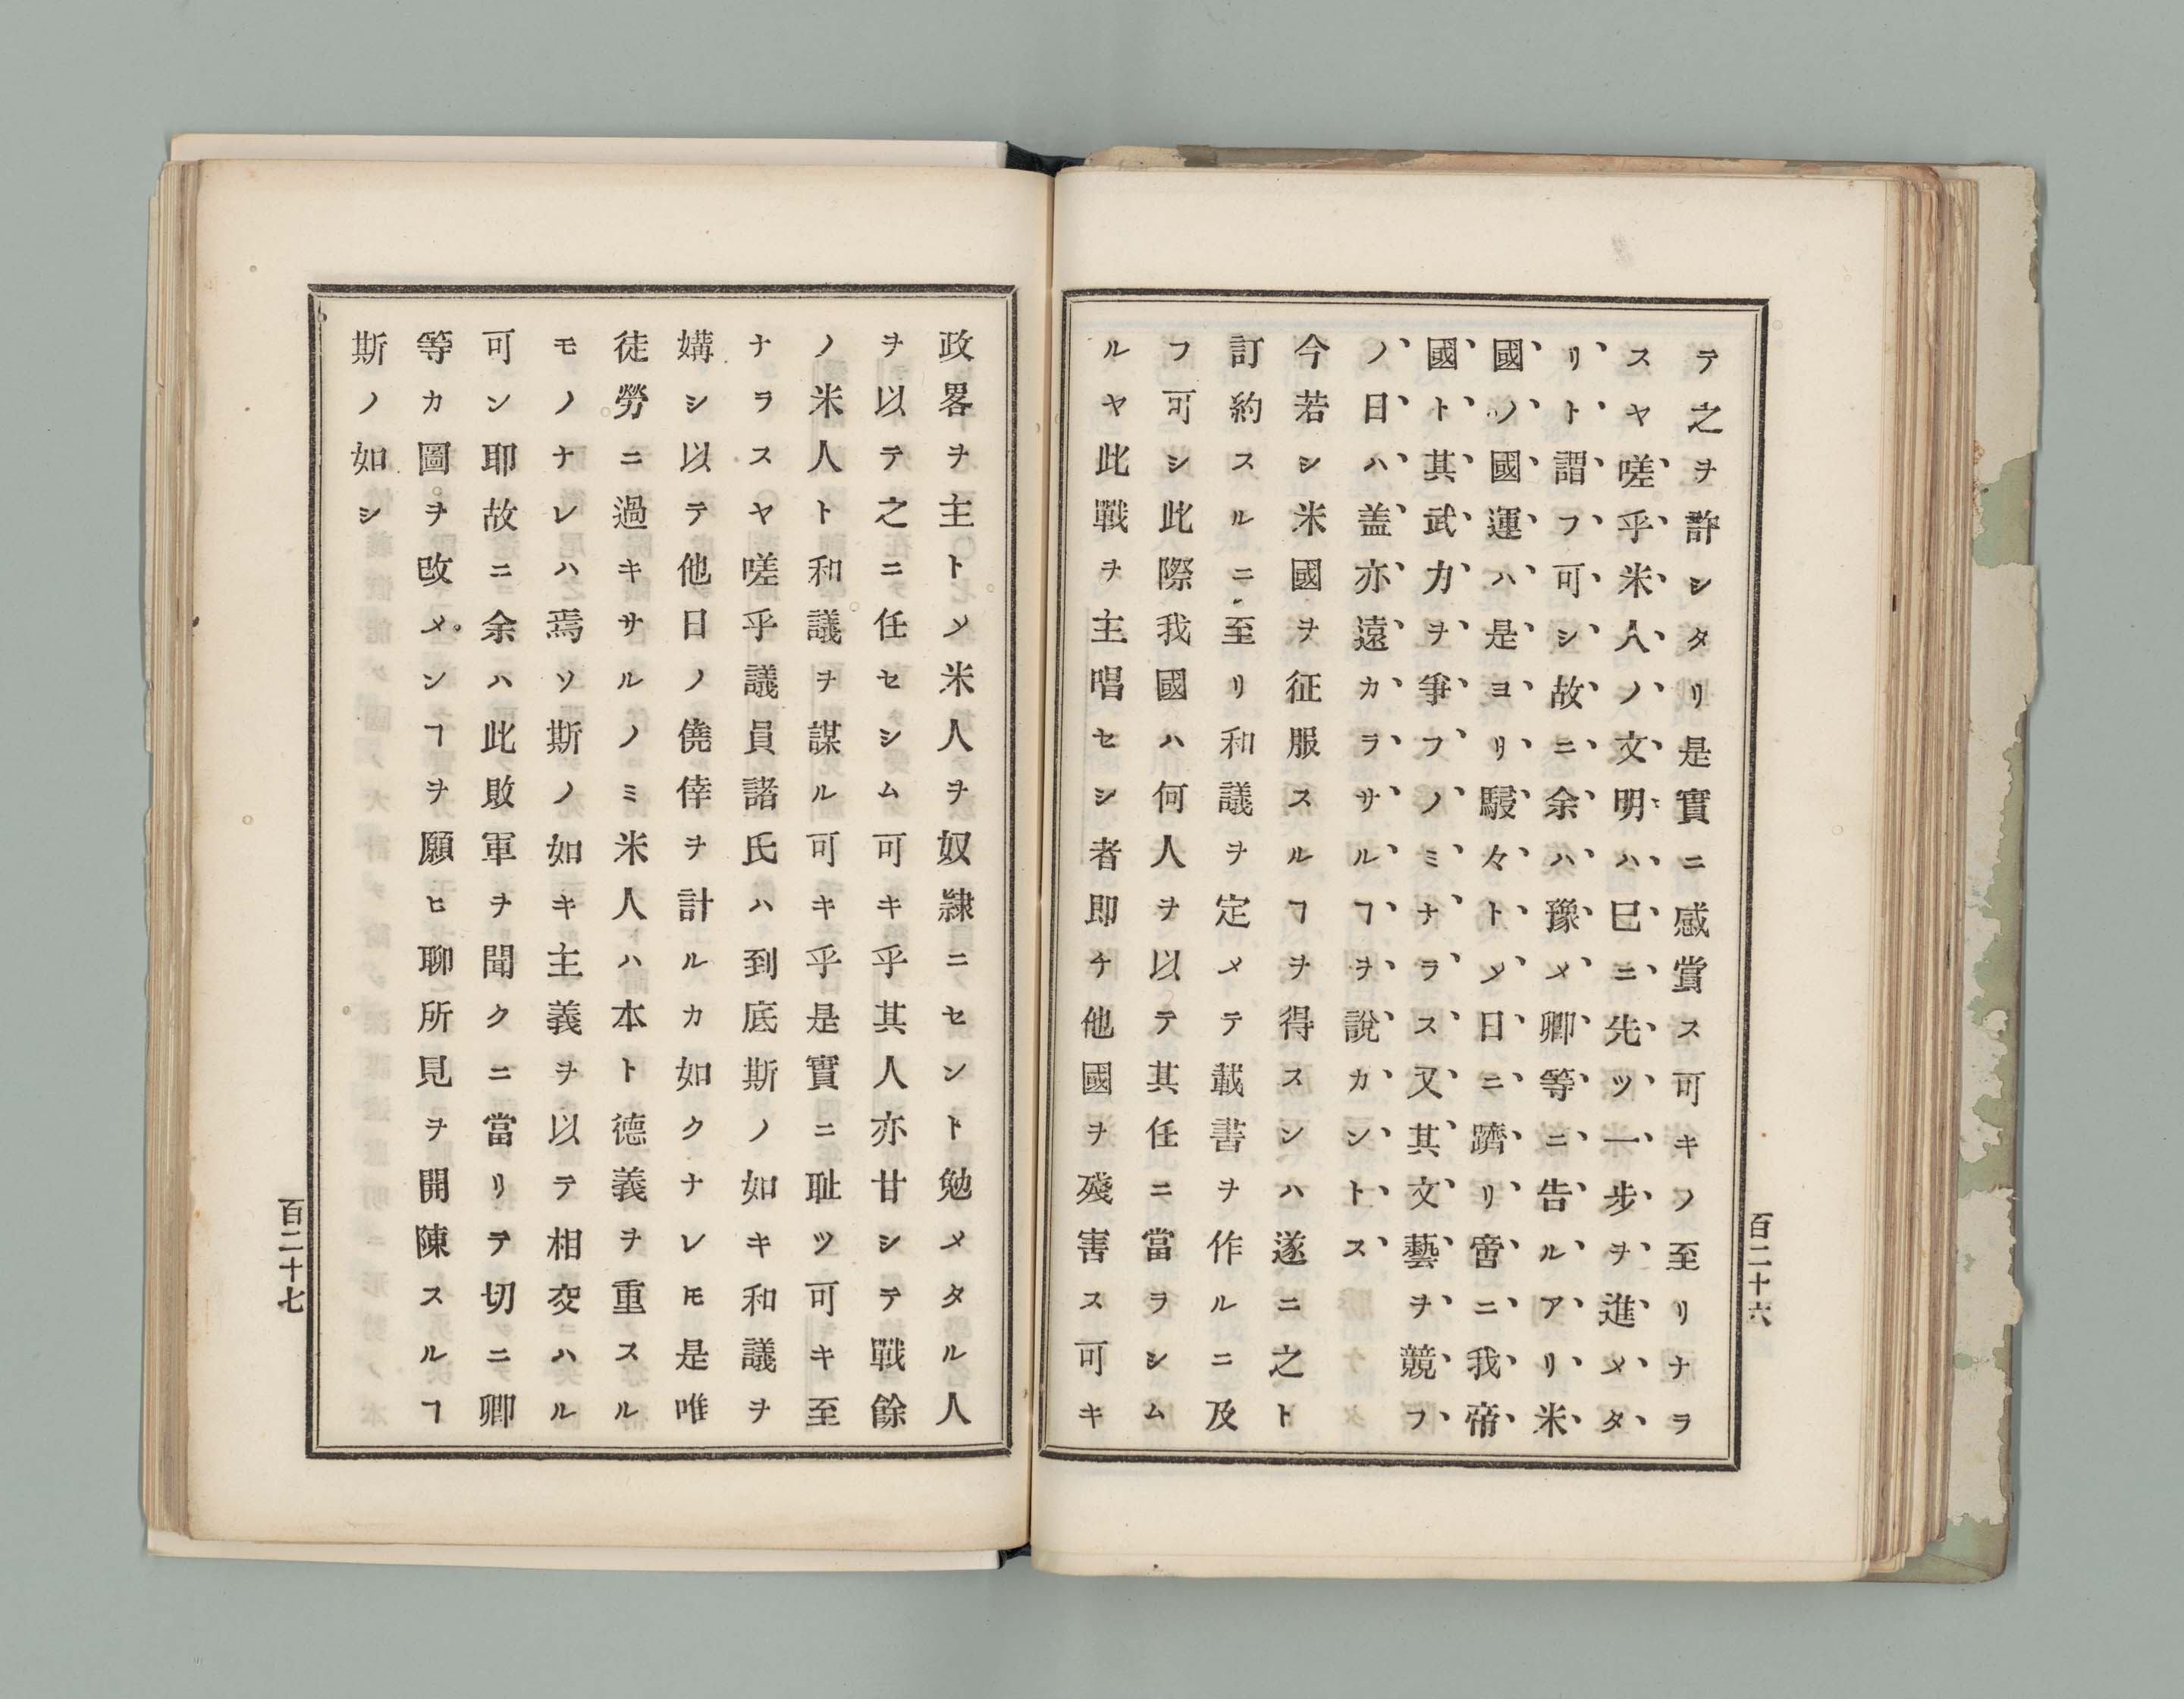 テ之ヲ許シタリ是實ニ感賞ス可キノ至リナラ
スヤ嗟乎米人ノ文明ハ已ニ先ツ一步ヲ進メタ
リト謂フ可シ故ニ余ハ豫メ卿等ニ告ルアリ米
國ノ國運ハ是ヨリ駸々トメ日ニ躋リ啻ニ我帝
國ト其武力ヲ爭フノミナラス又其文藝ヲ競フ
ノ日ハ盖亦遠カラサルヿヲ說カントス
今若シ米國ヲ征服スルヿヲ得スンハ遂ニ之ト
訂約スルニ至リ和議ヲ定メテ載書ヲ作ルニ及
フ可シ此際我國ハ何人ヲ以テ其任ニ當ラシム
ルヤ此戰ヲ主唱セシ者即チ他國ヲ殘害ス可キ
百二十六
政畧ヲ主トメ米人ヲ奴隸ニセント勉メタル人
ヲ以テ之ニ任セシム可キ乎其人亦甘シテ戰餘
ノ米人ト和議ヲ謀ル可キ乎是實ニ耻ツ可キ至
ナラスヤ嗟乎議員諸氏ハ到底斯ノ如キ和議ヲ
媾シ以テ他日ノ僥倖ヲ計ルカ如クナレ𪜈是唯
徒勞ニ過キサルノミ米人ハ本ト德義ヲ重スル
モノナレハ焉ソ斯ノ如キ主義ヲ以テ相交ハル
可ン耶故ニ余ハ此敗軍ヲ聞クニ當リテ切ニ卿
等カ圖ヲ改メンヿヲ願ヒ聊所見ヲ開陳スルヿ
斯ノ如シ
百二十七